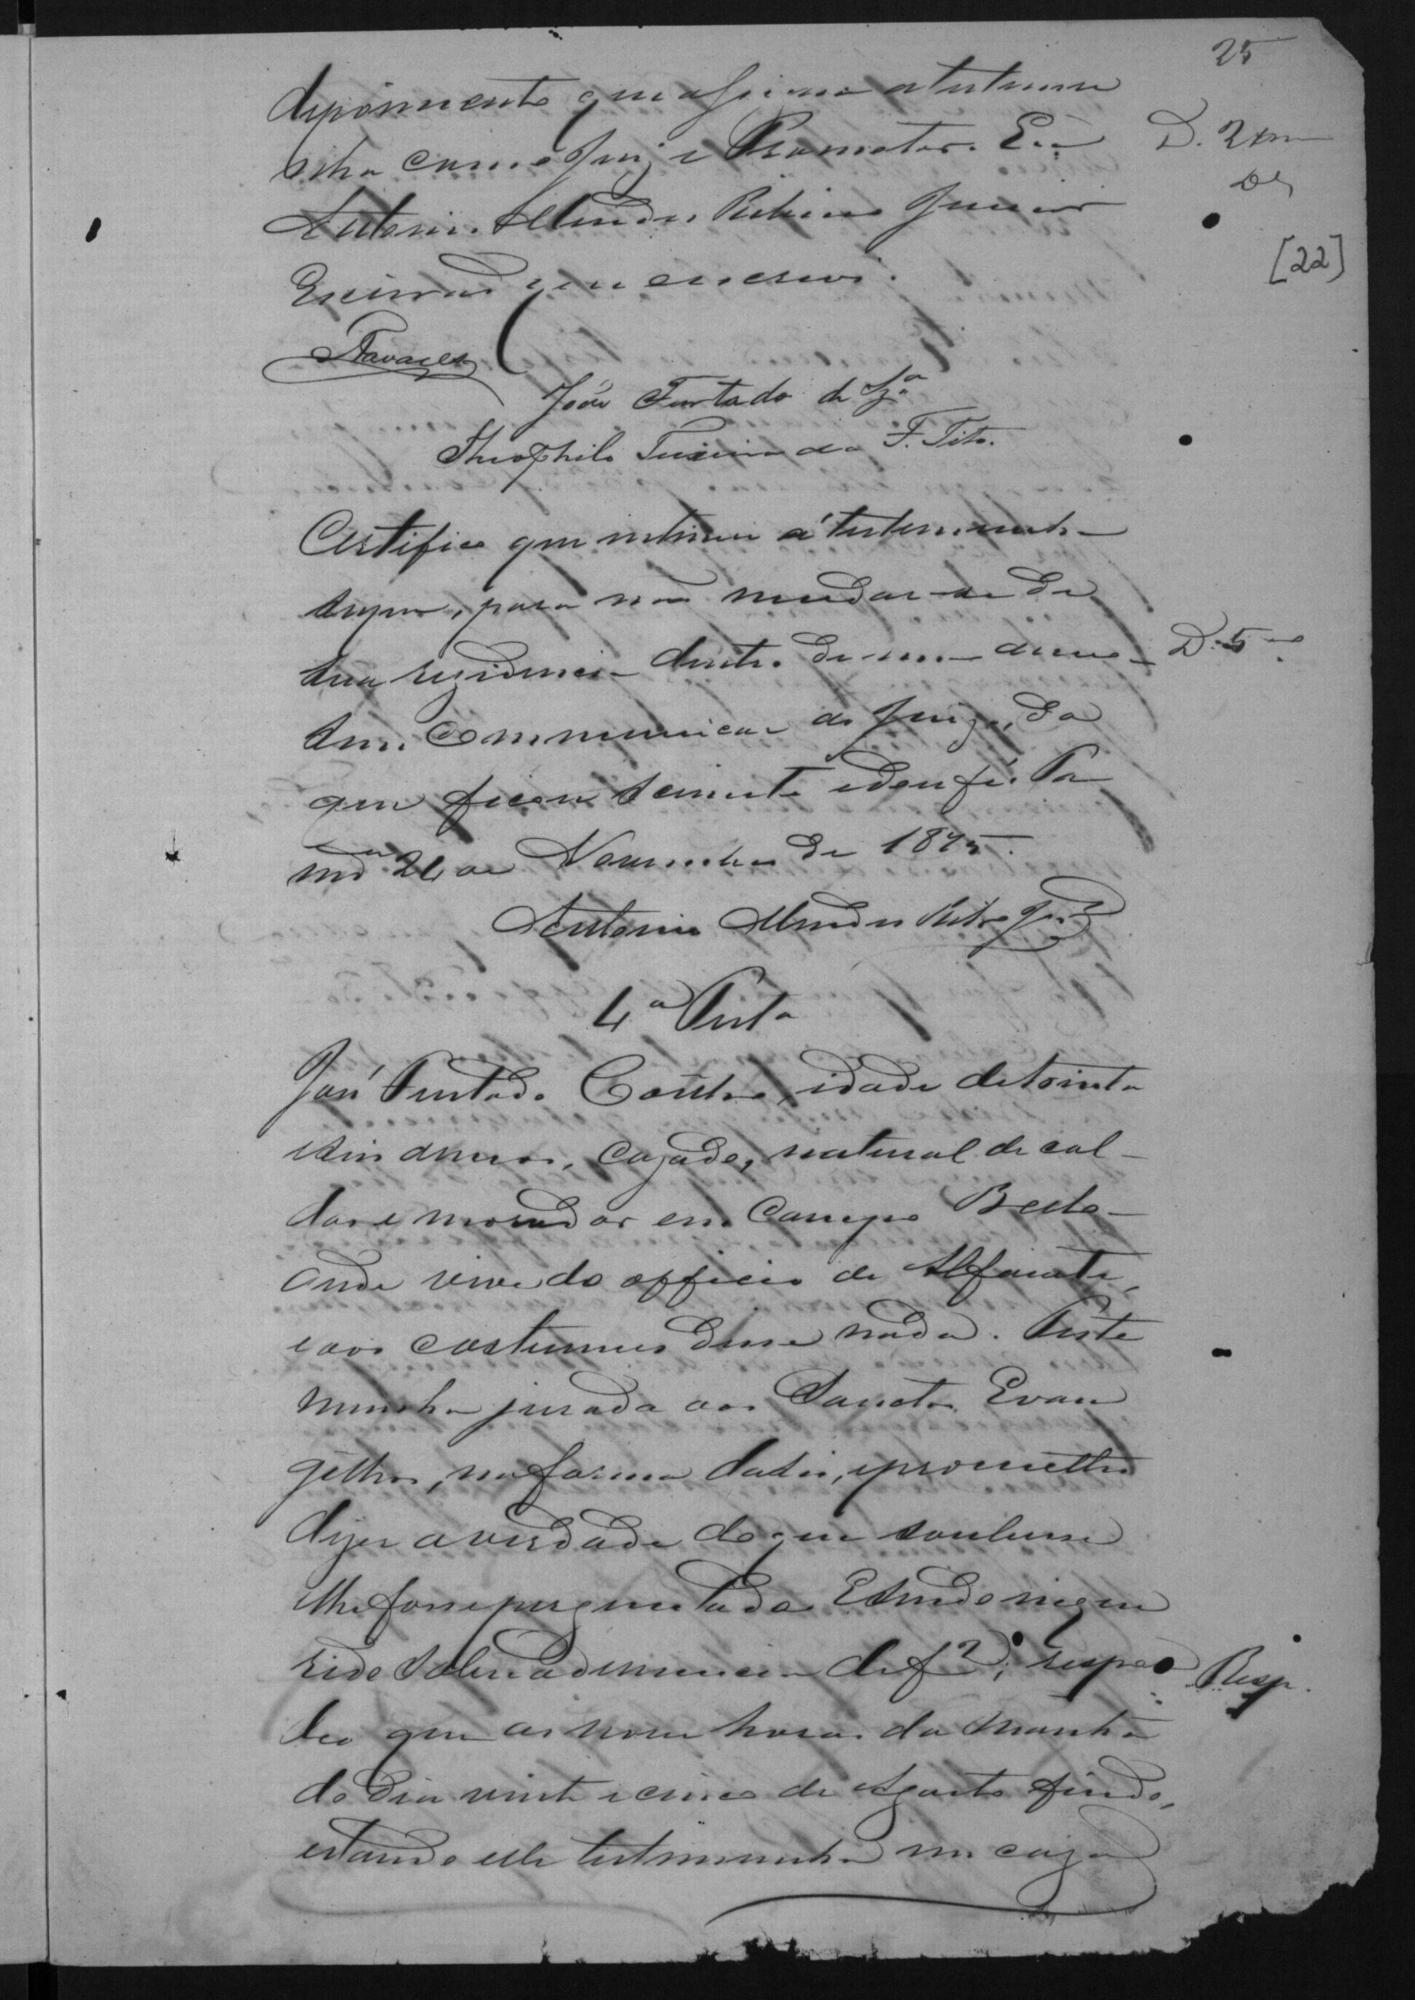 25
depoimento que assigna a testemu
nha com o Juiz e Promotor. Eu
D. 2
Antonio Mendes Ribeiro Junior
[22]
Escrivão que escrevi.
Tavares
João Furtado de Sza
Theophilo Teixeira da F. Tito.
Certifico que intimei á testemunha
supra, para não mudar-se de
sua residencia dentro de um anno
D. 5
sem communicar ao Juizo, do
que ficou sciente e dou fé.
24 de Novembro de 1875.
Antonio Mendes Ribro Jor
4a Testa
José Furtado Coêlho, idade de trinta
e seis annos, cazado, natural de Cal-
das e morador em Campo Bello
onde vive do officio de Alfaiate,
e aos costumes disse nada. Teste
munha jurada aos Sanctos Evan
gelhos, na forma da lei, e prometteu
dizer a verdade do que soubesse
e lhe fosse perguntado. E sendo inque
rido sobre a denuncia de f 2; respon
Resp.
deo que as nove horas da manhã
do dia vinte e cinco de Agosto findo,
estando elle testemunha em caza